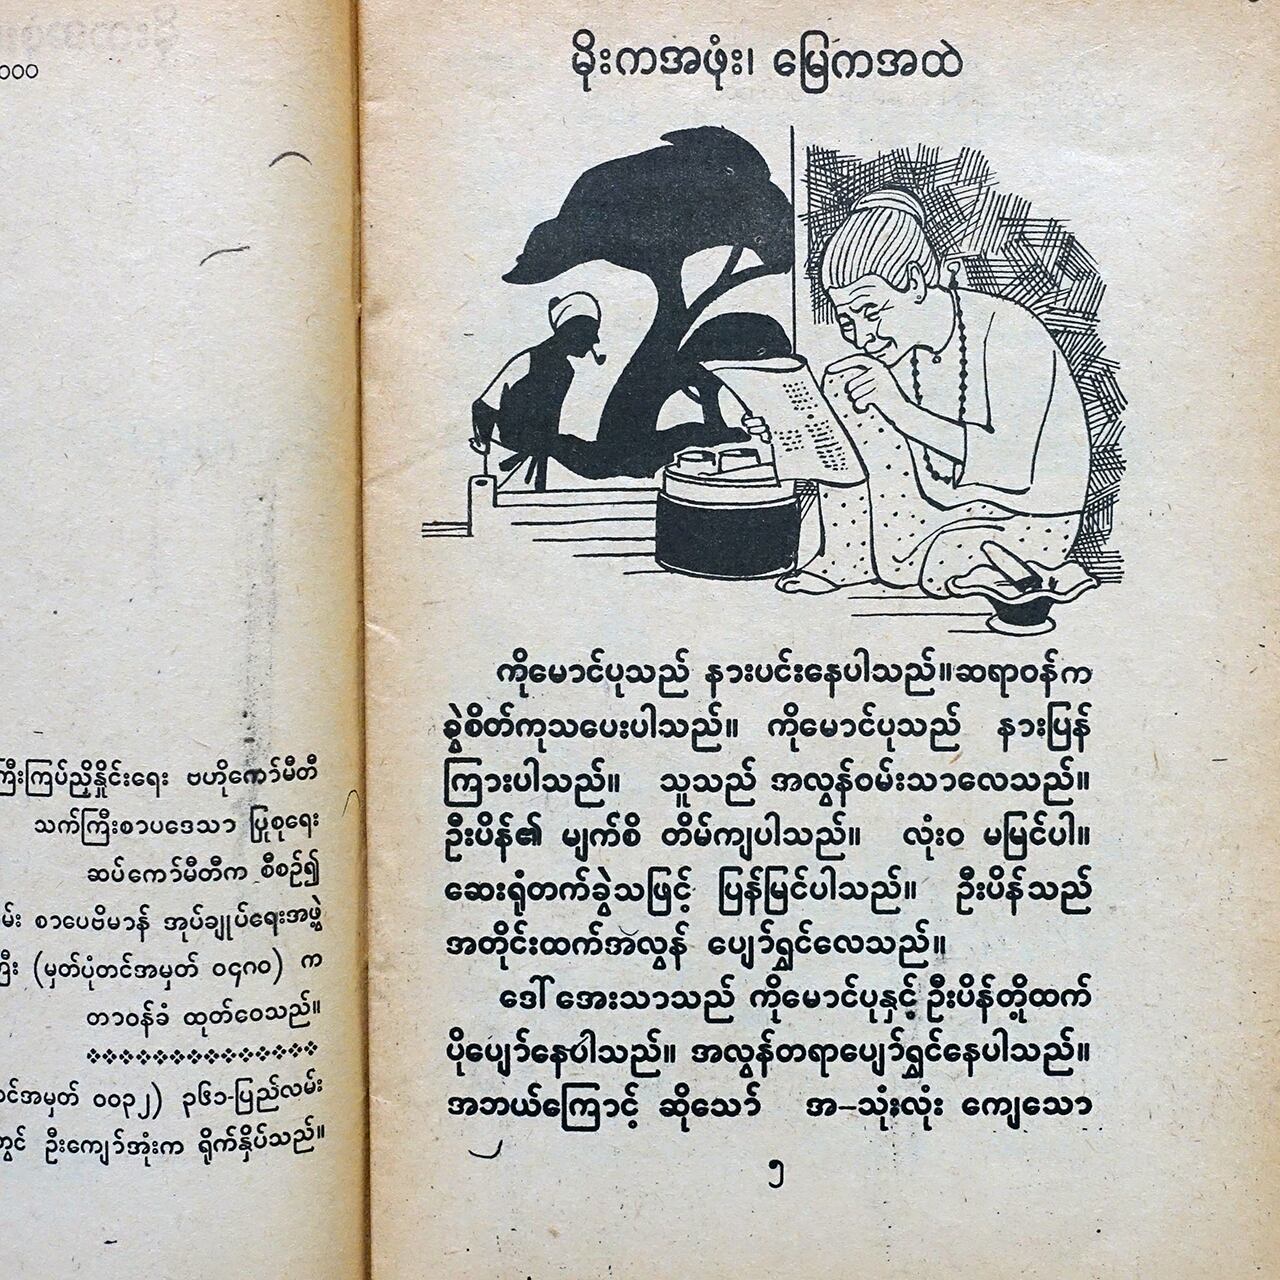 ၀၀၀
ကြီးကြပ်ညှိနှိုင်းရေး ဗဟိုကော်မီတီ
သက်ကြီးစာပဒေသာ ပြုစုရေး
ဆပ်ကော်မီတီက စီစဉ်၍
စာပေဗိမာန် အုပ်ချုပ်ရေးအဖွဲ့
(မှတ်ပုံတင်အမှတ် ၀၄ဂ၀) က
တာဝန်ခံ ထုတ်ဝေသည်။
၀၀၃၂) ၃၆၁-ပြည်လမ်း
ဦးကျော်အုံးက ရိုက်နှိပ်သည်။
မိုးကအဖုံး၊ မြေကအထဲ
ကိုမောင်ပုသည် နားပင်းနေပါသည်။ဆရာဝန်က
ခွဲစိတ်ကုသပေးပါသည်။ ကိုမောင်ပုသည် နားပြန်
ကြားပါသည်။ သူသည် အလွန်ဝမ်းသာလေသည်။
ဦးပိန်၏ မျက်စိ တိမ်ကျပါသည်။ လုံးဝ မမြင်ပါ။
ဆေးရုံတက်ခွဲသဖြင့် ပြန်မြင်ပါသည်။ ဦးပိန်သည်
အတိုင်းထက်အလွန် ပျော်ရွှင်လေသည်။
ဒေါ်အေးသာသည် ကိုမောင်ပုနှင့် ဦးပိန်တို့ထက်
ပိုပျော်နေပါသည်။ အလွန်တရာပျော်ရွှင်နေပါသည်။
အဘယ်ကြောင့် ဆိုသော် အ-သုံးလုံး ကျေသော
၅